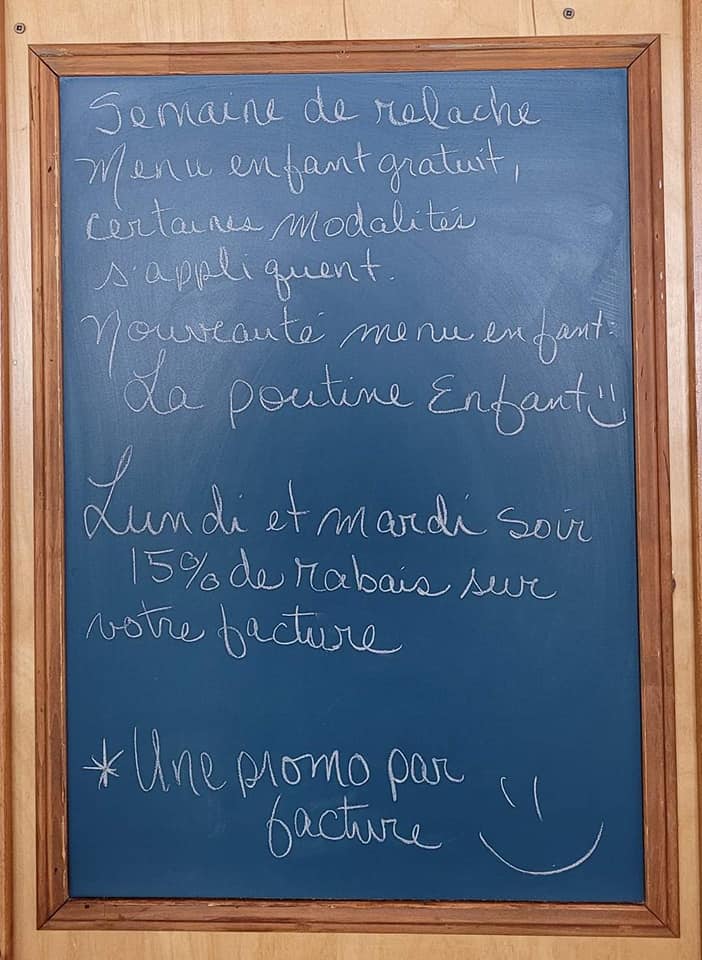 Semaine de relache
Menu enfant gratuit,
certaines modalités
s'appliquent.
Nouveauté menu enfant:
La poutine Enfant
Lundi et mardi soir
15% de rabais sur
votre facture
*Une promo par
facture